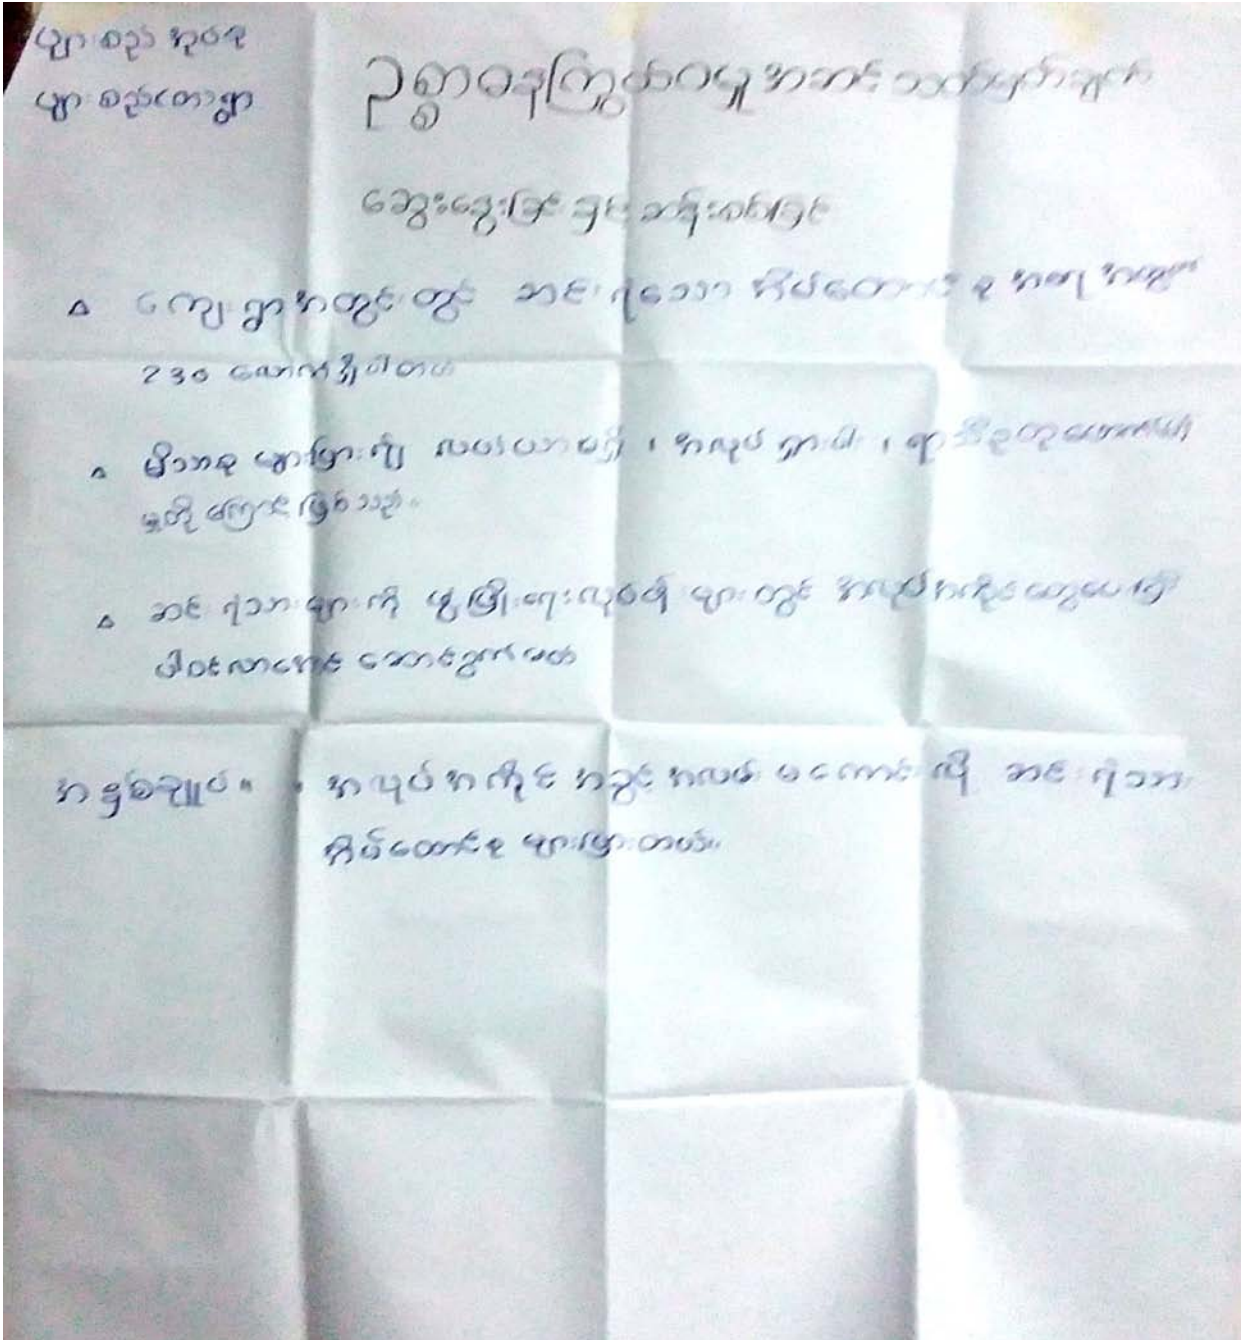 ပျားစည်အုပ်စု
ပျားစည်တောရွာ
ဥစ္စာဓနကြွယ်ဝမှုအဆင့်သတ်မှတ်ချက်
ဆွေးနွေးခြင်းနှင့်ဆန်းစစ်ခြင်း
ကျေးရွာအတွင်းတွင် ဆင်းရဲသော အိမ်ထောင်စု
230 လောက်ရှိပါတယ်
မိသားစုများပြားလို့ လယ်ယာမရှိ ၊ အလုပ်ရှားပါး ၊ ရာသီဥတုဖောက်ပြန်
မှုတို့ကြောင့်ဖြစ်သည်။
ဆင်းရဲသားများကို ဖွံ့ဖြိုးရေးလုပ်ငန်းများတွင် အလုပ်အကိုင်
ပါဝင်လာအောင် ဆောင်ရွက်မယ်
အနှစ်ချုပ်။ အလုပ်အကိုင် အခွင့်အလမ်း မကောင်းလို့ ဆင်းရဲသား
အိမ်ထောင်စု များပြားတယ်။